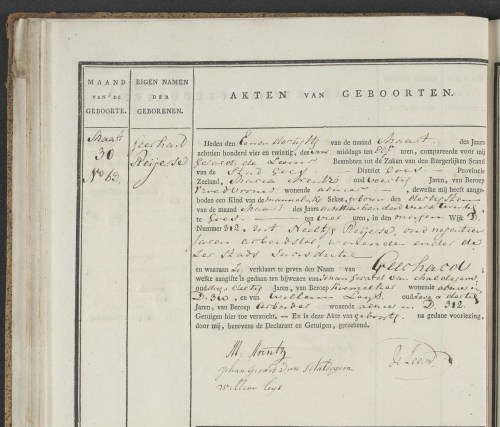 MAAND
VAN DE
GEBOORTE.
EIGEN NAMEN
DER
GEBORENEN.
AKTEN VAN GEBOORTEN.
Maart
30
No 63.
Geerhard
Reijerse
Heden den Eenen dertigste van de maand Maart des Jaars
achttien honderd vier en twintig, des middags ten uren, compareerde voor mij
Gerard de Leeuw Beambten tot de Zaken van den Burgerlijken Stand
van de Stad Goes District Goes Provincie
Zeeland, Maria oud veertig Jaren, van Beroep
Vroedvrouw wonende alhier, dewelke mij heeft aange-
boden een Kind van de mannelijke Sekse, geboren den dertigsten
van de maand Maart des Jaars achttienhonderd vier en twintig
te Goes ten vier uren, in den morgen Wijk D.
Nummer 312, uit Neeltje Reijerse, oud negentien
Jaren arbeidster, wonende onder de
Stads Jurisdictie
en waaraan verklaart te geven den Naam van Geerhard
welke aangifte is gedaan ten bijwezen van Johan Gerard van
oud Jaren, van Beroep wonende alhier in
D. 310, en van Willem Leijs, oud dertig
Jaren, van Beroep Arbeider wonende alhier in D. 312
Getuigen hier toe verzocht. En is deze Akte van geboorte na gedane voorlezing,
door mij, benevens de Declarant en Getuigen, geteekend.
Johan Gerard van
Willem Leijs
de Leeuw